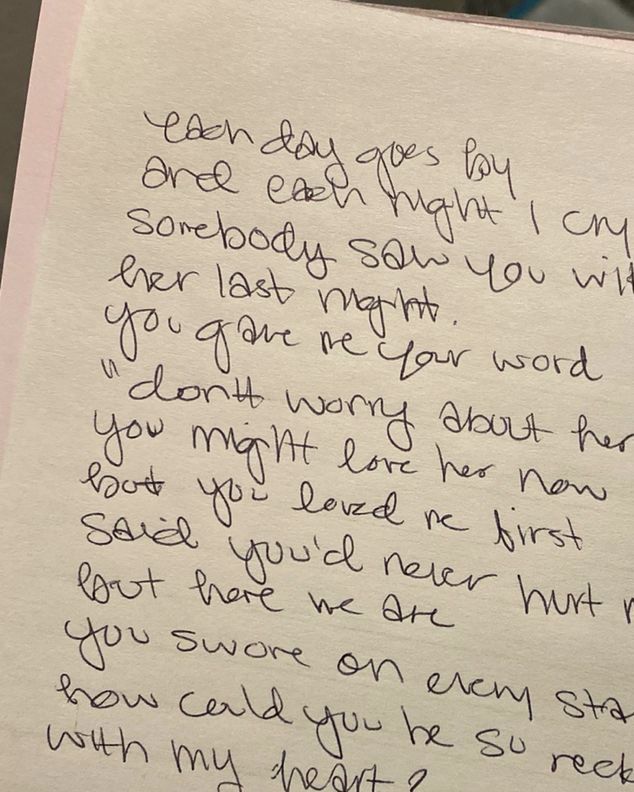 each day goes by
and each night I cry
somebody saw you wit
her last night.
you gave me your word
"don't worry about her
you might love her now
but you loved me first
said you'd never hurt
but here we are
you swore on every sta
how could you be so reck
with my heart?